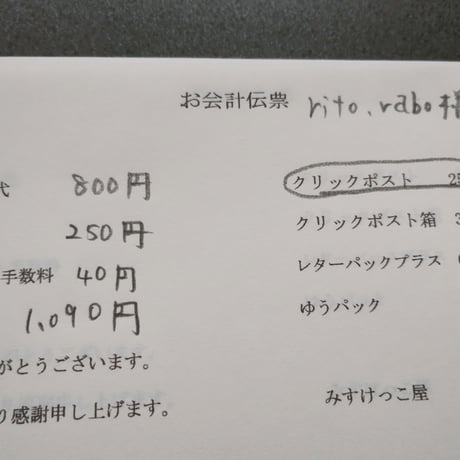 お会計伝票 rito.rabo様
代 800円
250円
手数料 40円
1,090円
がとうございます。
り感謝申し上げます。
クリックポスト 25
クリックポスト箱 3
レターパックプラス
ゆうパック
みすけっこ屋